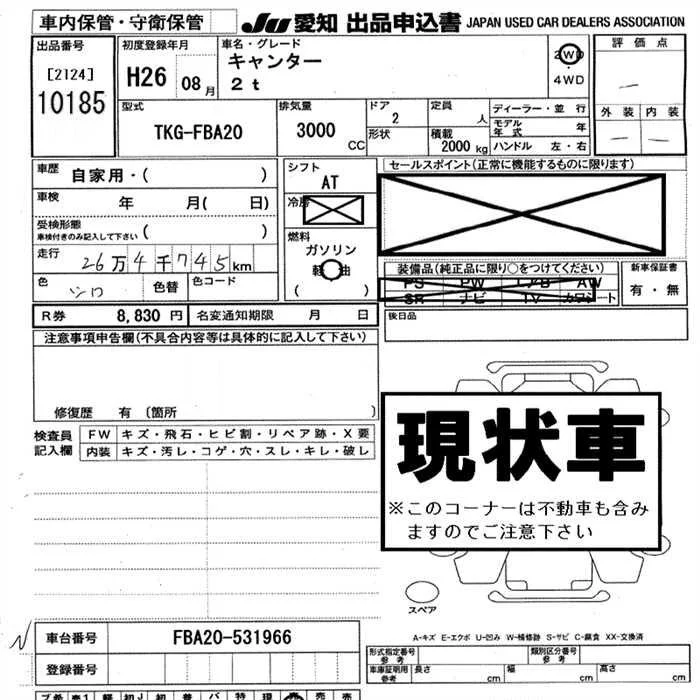 車内保管・守衛保管
JU 愛知 出品申込書 JAPAN USED CAR DEALERS ASSOCIATION
出品番号
[2124]
10185
初度登録年月
H26 08月
車名・グレード
キャンター
2t
2WD
・
4WD
評価点
—
外装 内装
— —
型式
TKG-FBA20
排気量
3000
CC
ドア
2
形状
定員
人
積載
2000 kg
ディーラー・並行
モデル年式 年
ハンドル 左・右
車歴 自家用・( )
車検 年 月( 日)
受検形態
車検付きのみ記入して下さい ( )
走行 26万4千745km
色 シロ 色替 色コード
シフト
AT
冷房
燃料
ガソリン
軽油
( )
セールスポイント(正常に機能するものに限ります)
装備品(純正品に限り○をつけてください)
PS PW エアB AW
SR ナビ TV カワシート
新車保証書
有・無
R券 8,830円 名変通知期限 月 日
後日品
注意事項申告欄(不具合内容等は具体的に記入して下さい)
修復歴 有 〔箇所 〕
検査員
記入欄
FW キズ・飛石・ヒビ割・リペア跡・X要
内装 キズ・汚レ・コゲ・穴・スレ・キレ・破レ
現状車
※このコーナーは不動車も含み
ますのでご注意下さい
スペア
A-キズ E-エクボ U-凹み W-補修跡 S-サビ C-腐食 XX-交換済
車台番号 FBA20-531966
登録番号
形式指定番号
参考
類別区分番号
参考
車庫証明用
参考
長さ cm 幅 cm 高さ cm